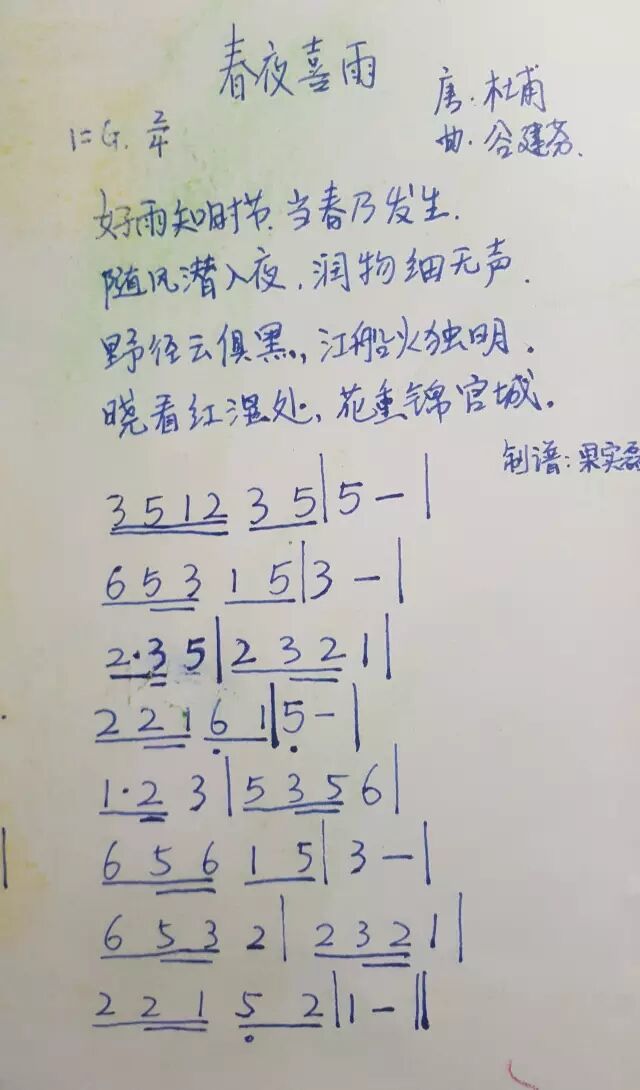 春夜喜雨
唐·杜甫
1=G. 2/4
曲·谷建芬.
好雨知时节.当春乃发生.
随风潜入夜,润物细无声.
野径云俱黑,江船火独明.
晓看红湿处,花重锦官城.
制谱:果实磊
3 5 1 2 3 5 | 5 - |
6 5 3 1 5 | 3 - |
2· 3 5 | 2 3 2 1 |
2 2 1 6̣ 1 | 5̣ - |
1· 2 3 | 5 3 5 6 |
6 5 6 1 5 | 3 - |
6 5 3 2 | 2 3 2 1 |
2 2 1 5̣ 2 | 1 - ‖